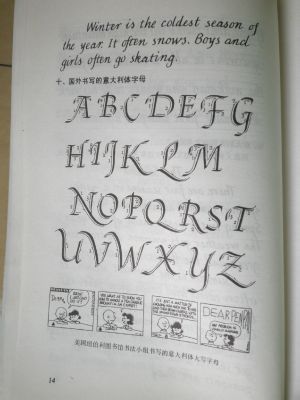 Winter is the coldest season of
the year. It often snows. Boys and
girls often go skating.
十、国外书写的意大利体字母
ABCDEFG
HIJKLM
NOPQRST
UVWXYZ
DEAR PEN PAL
美国纽伯利图书馆书法小组书写的意大利体大写字母
14